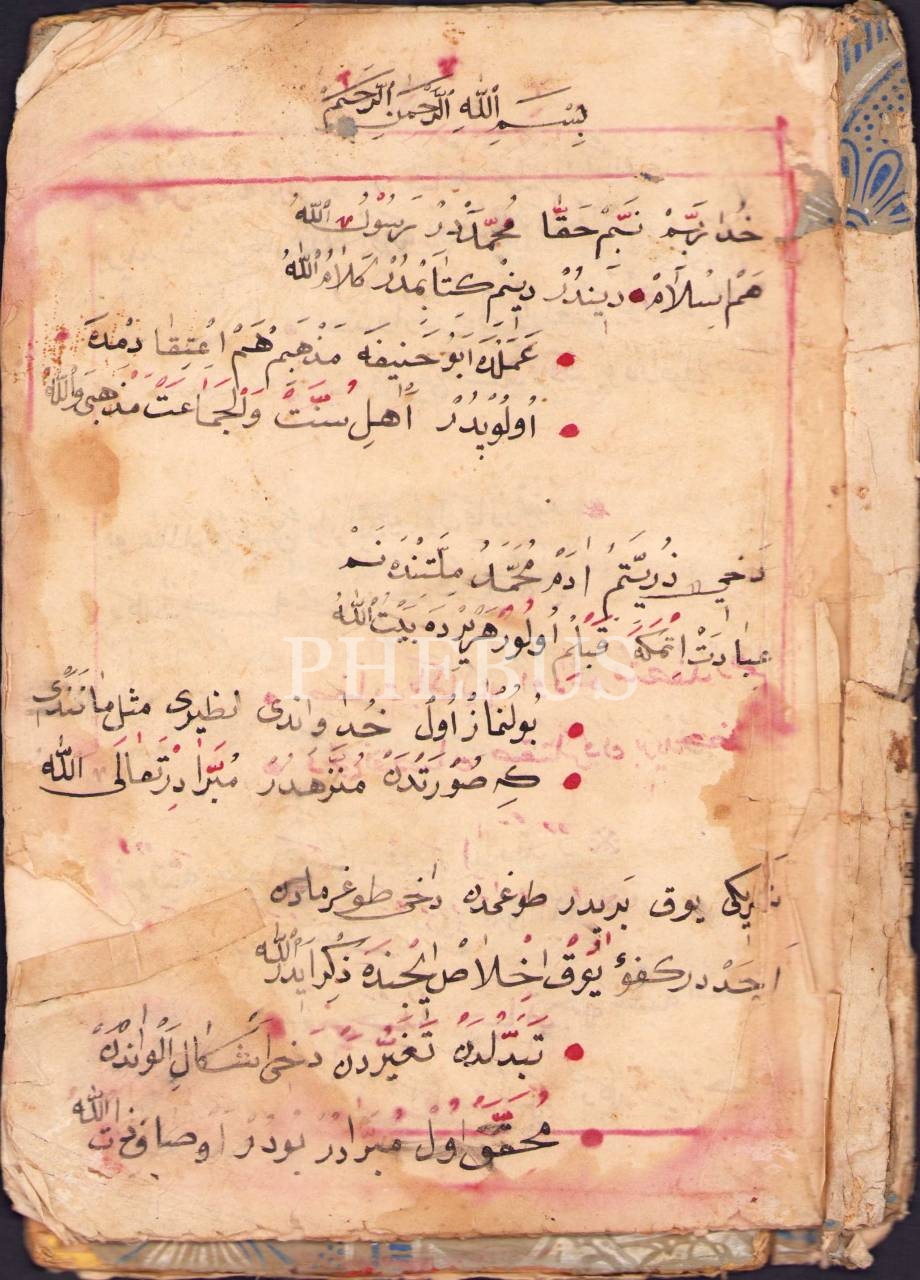 بِسْمِ اللّٰهِ الرَّحْمٰنِ الرَّحِيمْ
خُدا رَبِّمْ نَبِيِّمْ حَقَّا مُحَمَّدْدُرْ رَسُولُ اللّٰهْ
هَمْ اِسْلَامْ دِيندُرْ دِينِمْ كِتابِمْدُرْ كَلَامُ اللّٰهْ
عَمَلْدَه اَبُو حَنِيفَه مَذْهَبِمْ هَمْ اِعْتِقا دمْدَه
اُولُوبْدُرْ اَهْلِ سُنَّتْ وَالْجَمَاعَتْ مَذْهَبِى وَاللّٰهْ
دَخِي ذُرِّيَّتِمْ اٰدَمْ مُحَمَّدْ مِلَّتِنْدَه نَمْ
عِبادَتْ اِتْمَكَه قِبْلَمْ اُولُورْ هَرْيَرْدَه بَيْتُ اللّٰهْ
PHEBUS
بُولُنْمازْ اُولْ خُدا واندى نظيرى مثل مانَنْدى
كِه صُورَتْدَنْ مُنَزَّهدُرْ مُبَرّادِرْ تَعالَى اللّٰهْ
شريكى يوق بَرِيدر طوغمدن دخى طوغرمادن
اَحَدْدر كفؤ يُوقْ اِخْلاصْ ايچِنْدَه ذِكْر ايدَر اللّٰهْ
تَبَدُّلْدَنْ تَغَيُّرْدن دَخى اَشْكالِ اَلْواندَنْ
مُحَقَّقْ اُولْ مُبَرّادر بُودُرْ اَوصافِ اللّٰهْ